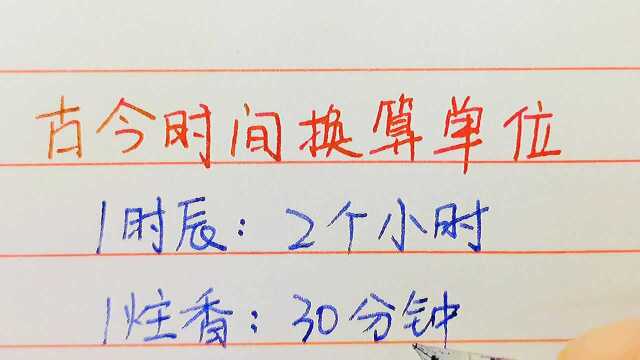 古今时间换算单位
1时辰：2个小时
1炷香：30分钟